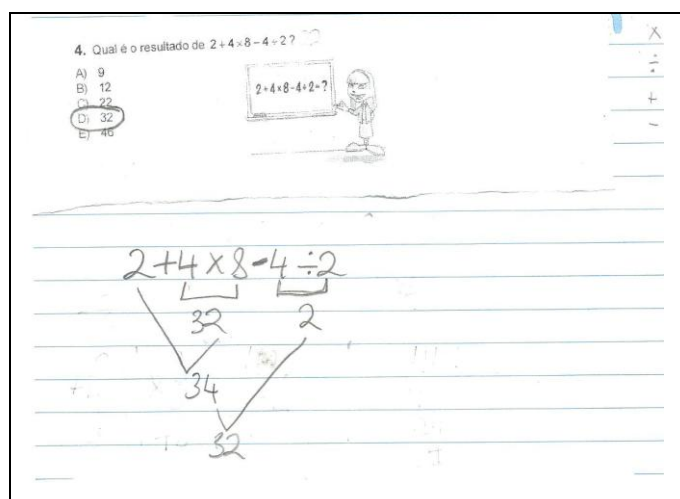 4. Qual é o resultado de 2+4×8–4÷2?
A) 9
B) 12
C) 22
D) 32
E) 46
2+4×8-4÷2=?
×
÷
+
-
2+4×8-4÷2
32 2
34
32